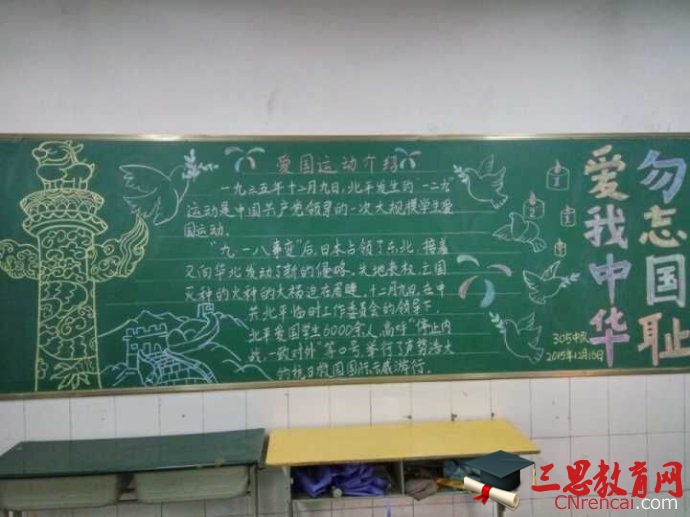 爱国运动介绍
一九三五年十二月九日,北平发生的"一二九"
运动是中国共产党领导的一次大规模学生爱
国运动。
"九一八事变"后,日本占领了东北,接着
又向华北发动了新的侵略。失地丧权,亡国
灭种的大祸迫在眉睫,十二月九日,在中
共北平临时工作委员会的领导下,
北平爱国学生6000余人,高呼"停止内
战,一致对外"等口号,举行了声势浩大
的抗日救国国际示威游行。
勿忘国耻
爱我中华
305中队
2015年12月10日
三思教育网
CNrencai.com